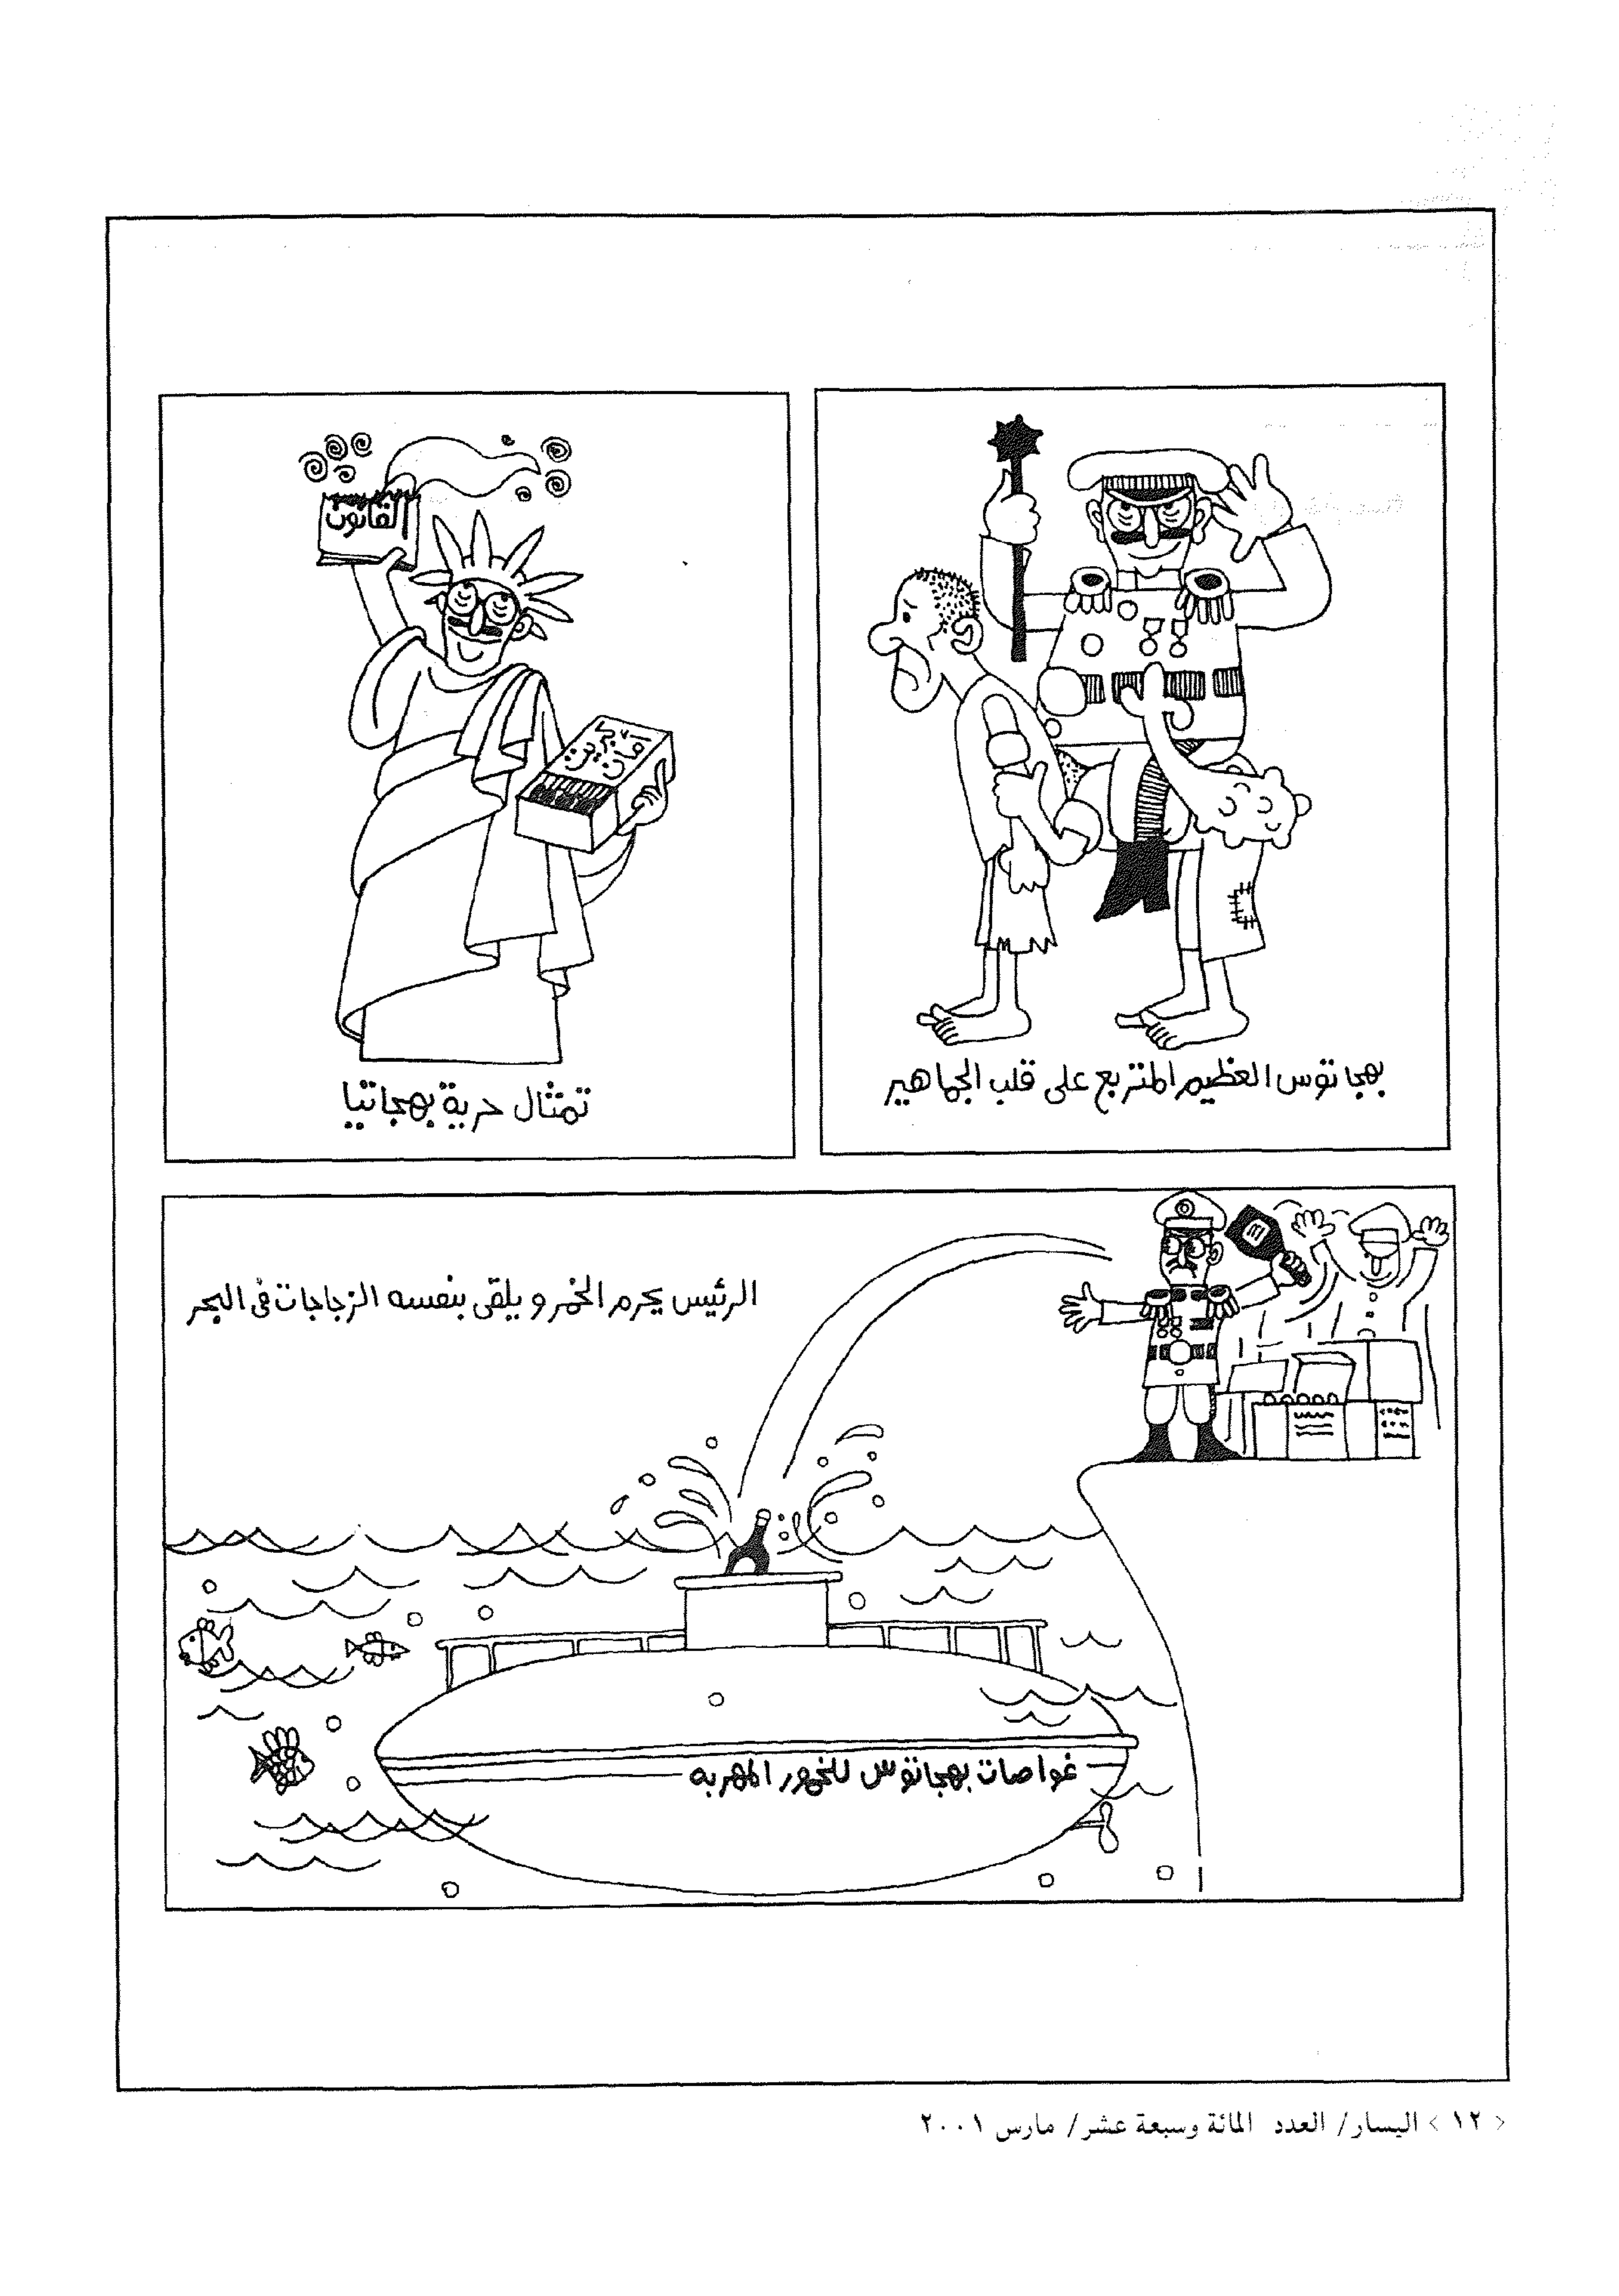 بهجاتوس العظيم المتربع على قلب الجماهير
القانون
تمثال حرية بهجاتيا
الرئيس يحرم الخمر ويلقى بنفسه الزجاجات فى البحر
غواصات بهجاتوس للخمور المهربه
< ١٢ > اليسار/ العدد المائة وسبعة عشر/ مارس ٢٠٠١